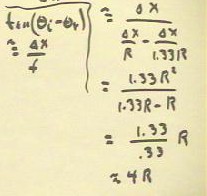 tan(θi-θr)
≈ Δx
f
≈ Δx
Δx/R - Δx/1.33R
= 1.33R²
1.33R - R
= 1.33/.33 R
≈ 4R